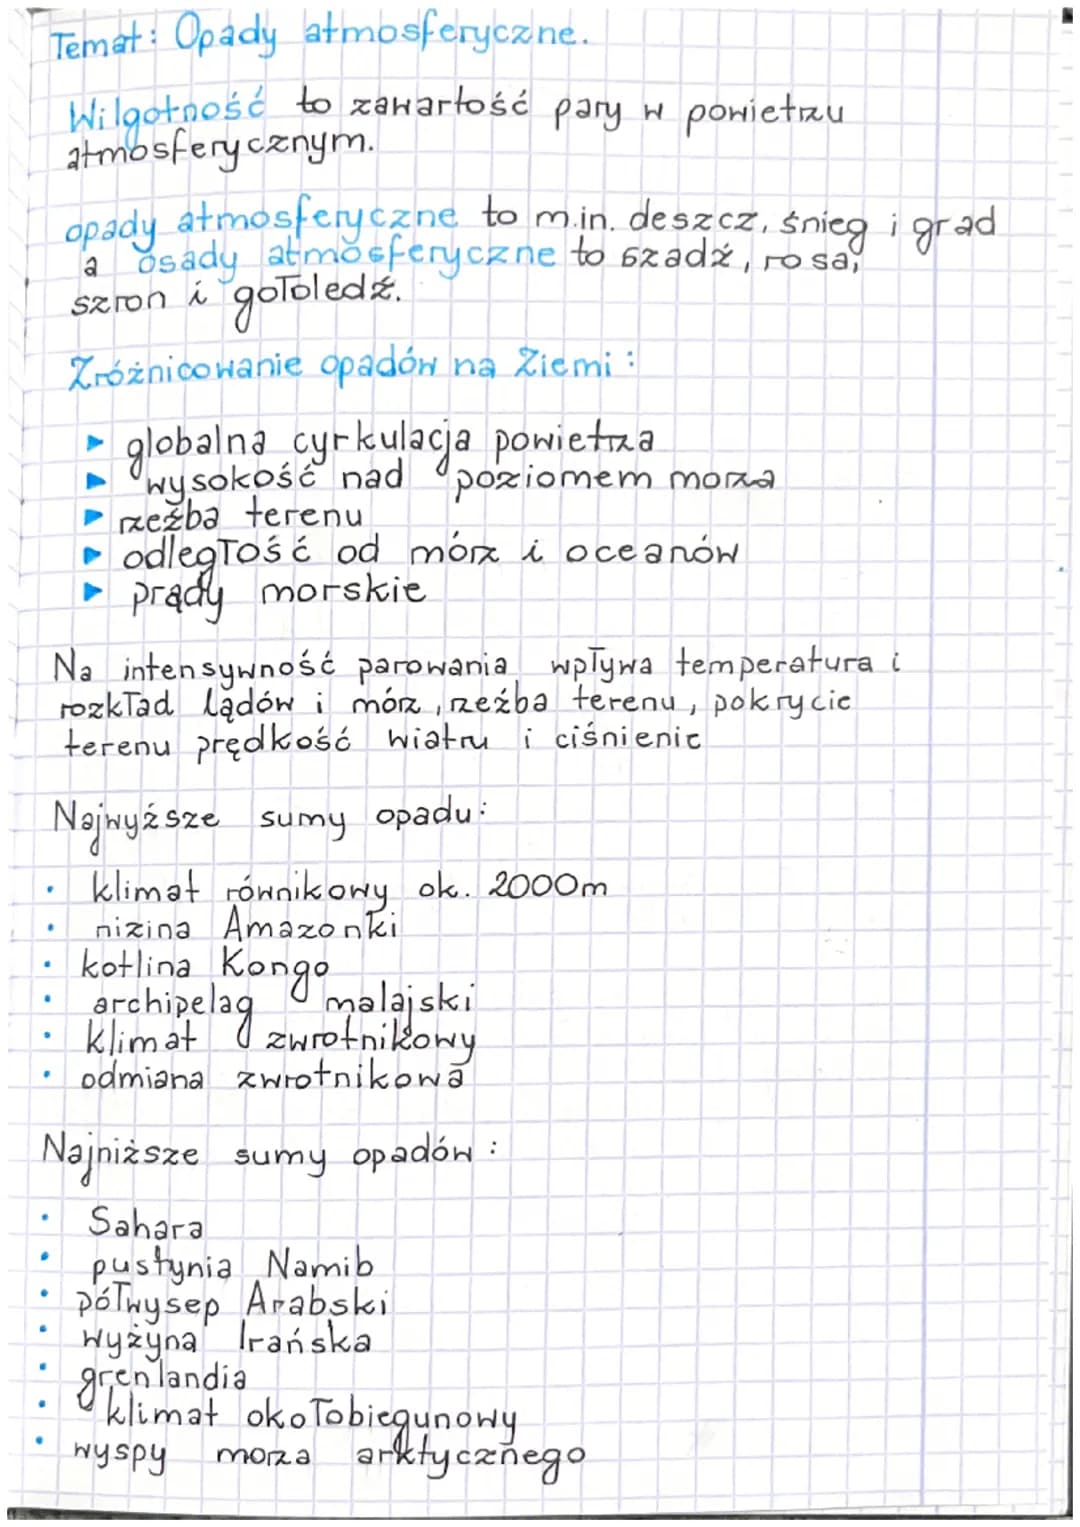 Temat: Opady atmosferyczne.
Wilgotność to zawartość pary w powietrzu
atmosferycznym.
opady atmosferyczne to m.in. deszcz, śnieg i grad
a osady atmosferyczne to szadź, rosa,
szron i gołoledź.
Zróżnicowanie opadów na Ziemi:
▶ globalna cyrkulacja powietrza
▶ wysokość nad poziomem morza
▶ rzeźba terenu
▶ odległość od mórz i oceanów
▶ prądy morskie
Na intensywność parowania wpływa temperatura i
rozkład lądów i mórz, rzeźba terenu, pokrycie
terenu prędkość wiatru i ciśnienie
Najwyższe sumy opadu:
• klimat równikowy ok. 2000m
• nizina Amazonki
• kotlina Kongo
• archipelag malajski
• klimat zwrotnikowy
• odmiana zwrotnikowa
Najniższe sumy opadów:
• Sahara
• pustynia Namib
• półwysep Arabski
• wyżyna Irańska
• grenlandia
• klimat okołobiegunowy
• wyspy morza arktycznego